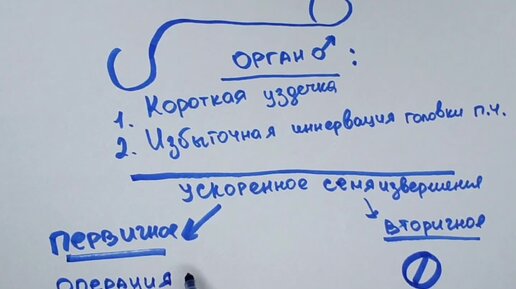 ОРГАН ♂ :
1. Короткая уздечка
2. Избыточная иннервация головки п.ч.
ускоренное семяизвершения
первичное
вторичное
операция